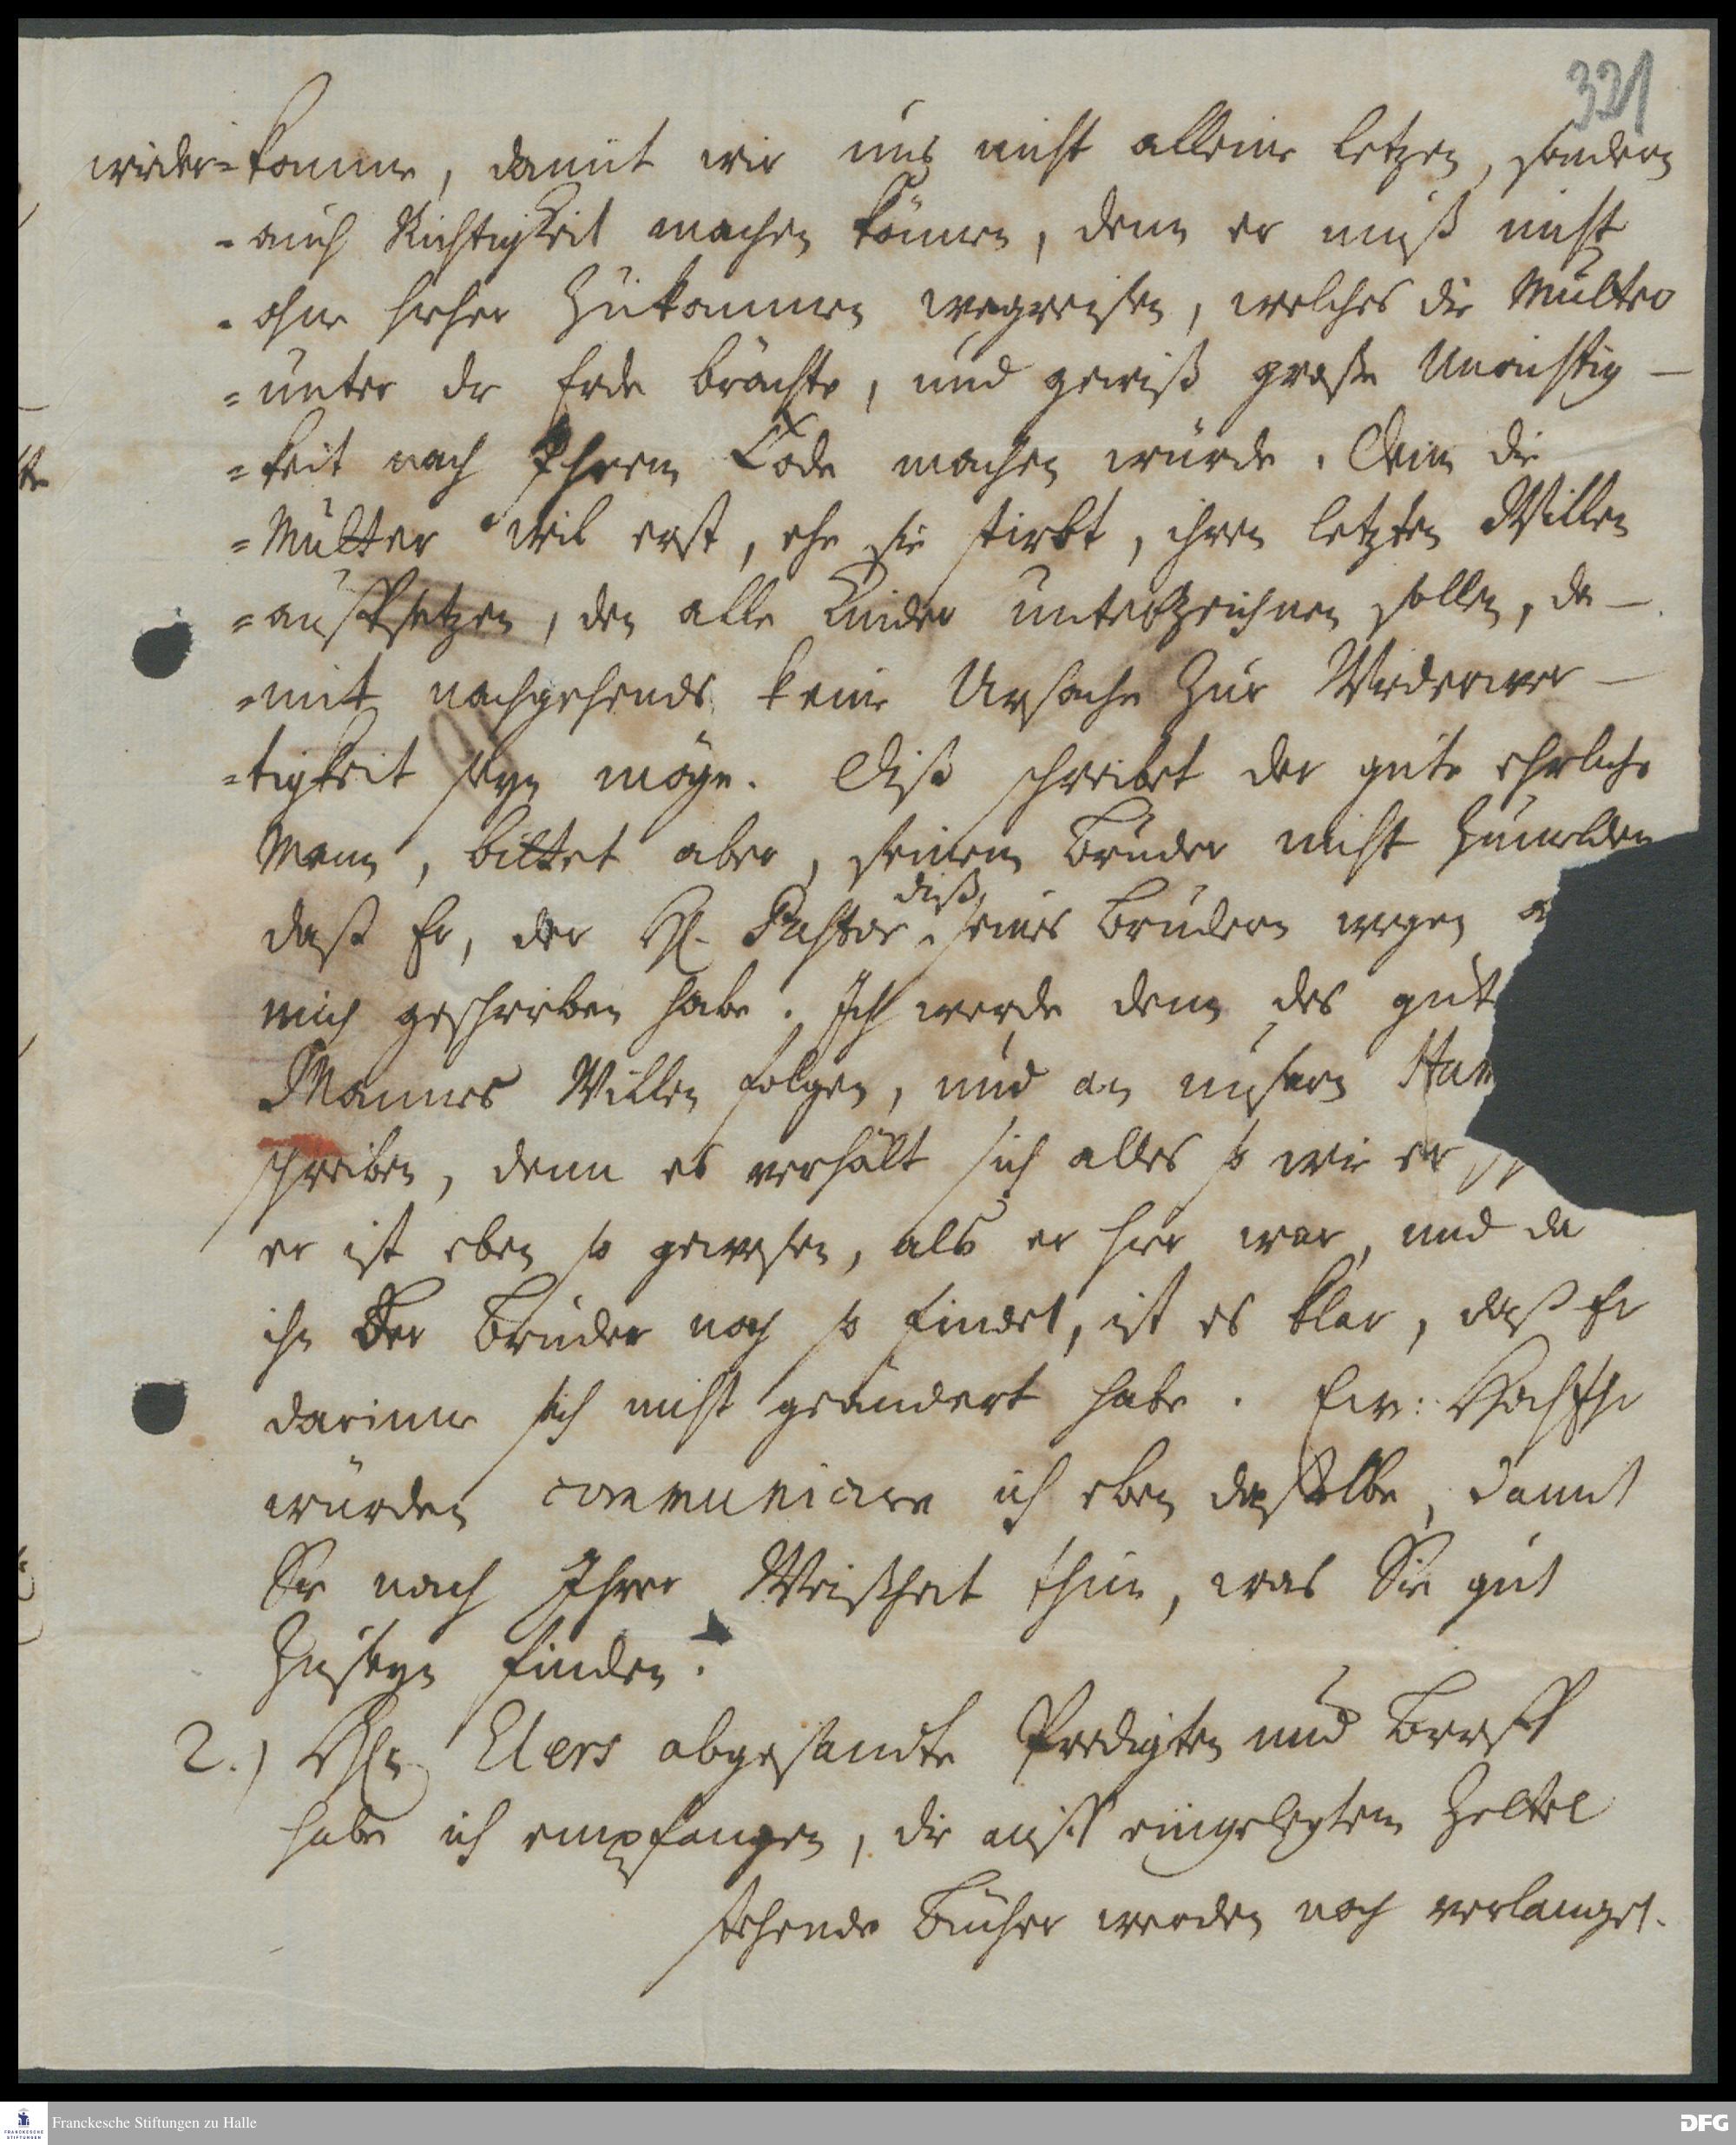 321
wider=komme, damit wir uns nicht alleine letzen, sondern
=auch Richtigkeit machen können, denn er muß nicht
=ohne hieher Zukommen wegreisen, welches die Mutter
=unter die Erde brächte, und gewiß große Unrichtig-
=keit nach Ihrem Tode machen würde. Denn die
=Mutter wil erst, ehe sie stirbt, ihren letzten Willen
=auffsetzen, den alle Kinder unterzeichnen sollen, da-
=mit nachgehends keine Ursache Zur Widerwer-
=tigkeit seyn möge. Diß schreibet der gute ehrliche
Mann, bittet aber, seinem Bruder nicht Zumelden
daß Er, der H. Pastor diß seines Brudern wegen a
mich geschrieben habe. Ich werde denn des gut
Mannes Willen folgen, und an unsern Ham
schreiben, denn es verhält sich alles so wie er
er ist eben so gewesen, als er hier war, und da
ihn der Bruder noch so findet, ist es klar, daß Er
darinne sich nicht geändert habe. Ew: HochEhr
würden communicire ich eben daßelbe, damit
Sie nach Ihrer Weißheit thun, was Sie gut
Zuseyn finden.
2.) Hn Elers abgesandte Predigten und Brieff
habe ich empfangen, die auff eingelegtem Zettel
stehende Bücher werden noch verlanget.
Franckesche Stiftungen zu Halle
FRANCKESCHE STIFTUNGEN
DFG